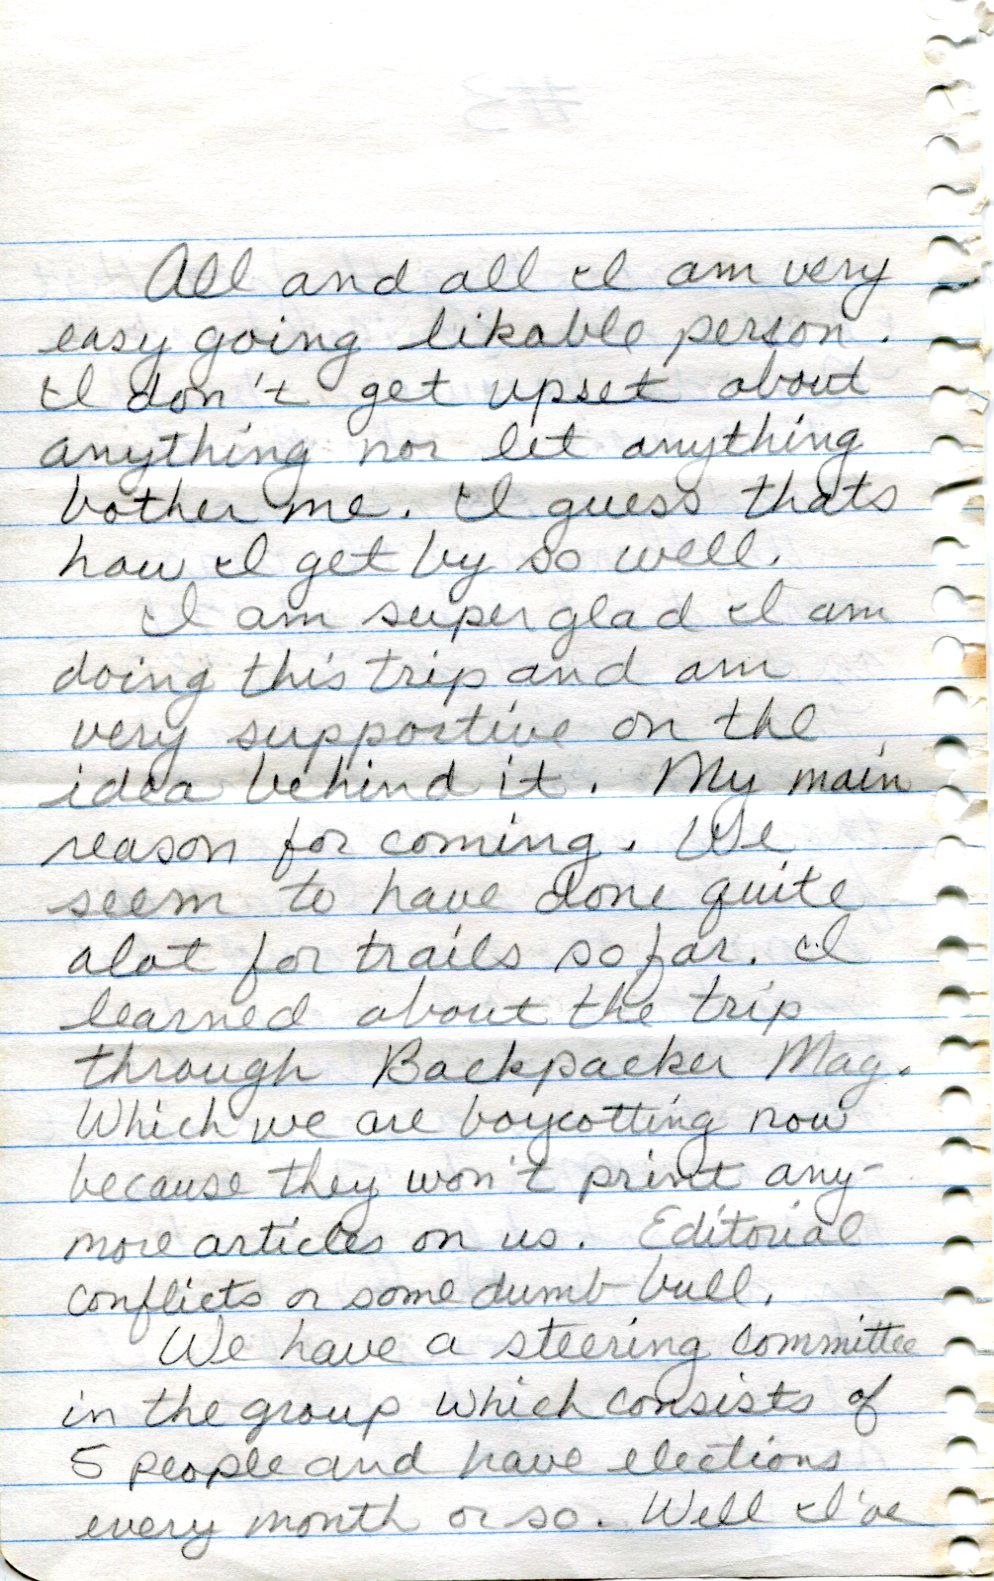 #3
All and all I am very
easy going likable person.
I don't get upset about
anything nor let anything
bother me. I guess thats
how I get by so well.
I am super glad I am
doing this trip and am
very supportive on the
idea behind it. My main
reason for coming. We
seem to have done quite
alot for trails so far. I
learned about the trip
through Backpacker Mag.
Which we are boycotting now
because they won't print any-
more articles on us. Editorial
conflicts or some dumb bull.
We have a steering committee
in the group which consists of
5 people and have elections
every month or so. Well I've